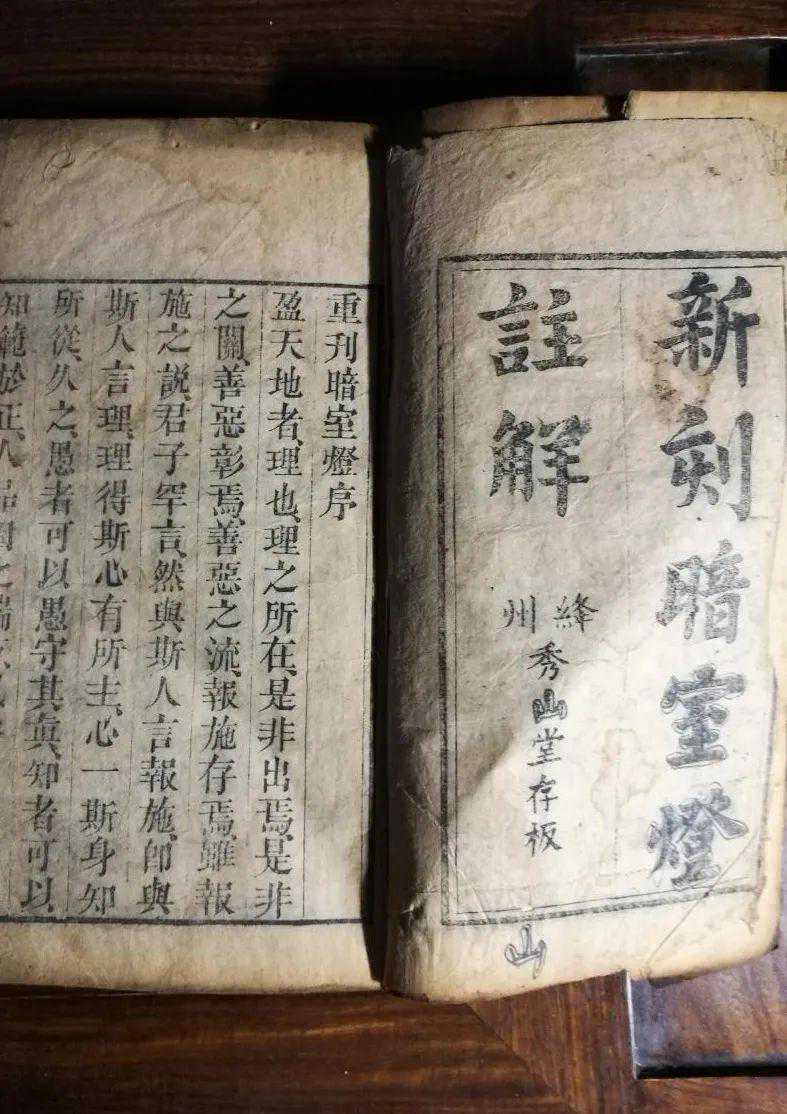 新刻暗室燈
註解
絳州
秀山堂存板
山
重刊暗室燈序
盈天地者、理也、理之所在、是非出焉、是非
之關、善惡彰焉、善惡之流、報施存焉、雖報
施之說、君子罕言、然與斯人言報施、卽與
斯人言理、理得斯心有所主、心一斯身知
所從、久之、愚者可以愚守其眞、知者可以
知範於正、人品